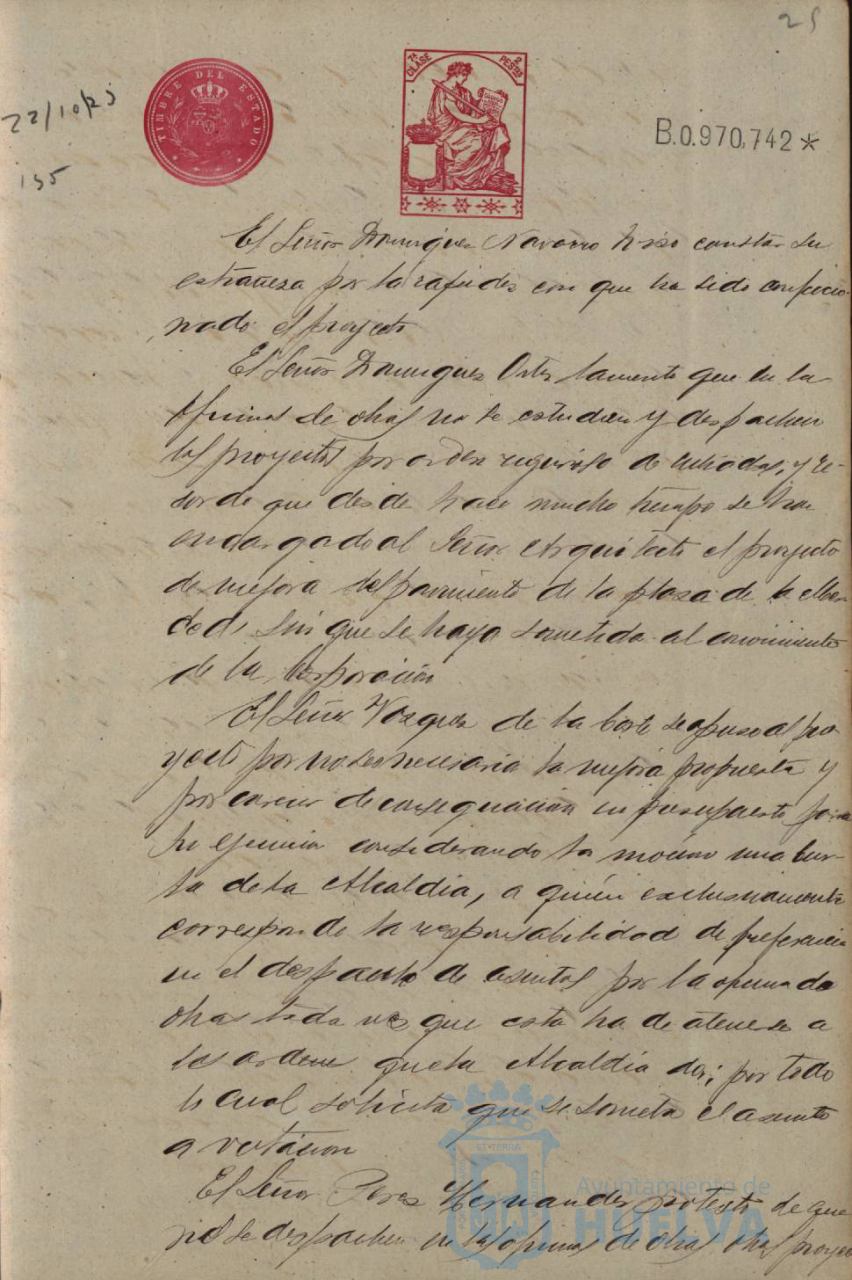 25
22/10/23
135
TIMBRE DEL ESTADO
7ª CLASE 2 PESTAS
B.0.970,742*
El Señor Dominguez Navarro hizo constar su
estrañeza por la rapides con que ha sido confeccio-
nado el proyecto
El Señor Dominguez Ortiz lamento que en la
oficinas de obras no se estudien y despachen
los proyectos por orden riguroso de entradas, y re-
cordo que desde hace mucho tiempo se ha
encargado al Señor Arquitecto el proyecto
de mejora del pavimiento de la plaza de la Mer-
ced sin que se haya sometido al conocimiento
de la Corporación
El Señor Vazquez de la Corte se opuso al pro
yecto por no ser necesaria la mejora propuesta y
por carecer de consignación en presupuesto para
su ejecución considerando la moción una bur-
la de la Alcaldia, a quien exclusivamente
corresponde la responsabilidad de preferencia
en el despacho de asuntos por la oficina de
obras toda vez que esta ha de atenerse a
las ordenes que la Alcaldía dé; por todo
lo cual solicita que se someta el asunto
a votacion
El Señor Perez Hernandez protesto de que
no se despachen en las oficinas de obras otros proyec
Ayuntamiento de
HUELVA